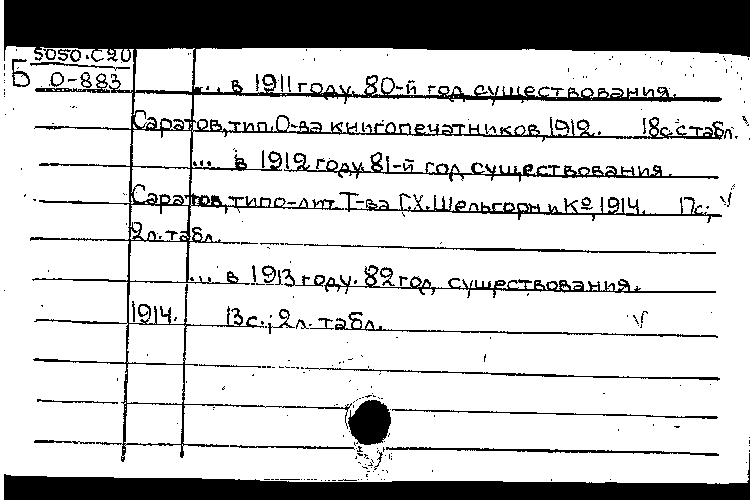 5050.С20
Б О-883
... в 1911 году. 80-й год существования.
Саратов, тип. О-ва книгопечатников, 1912. 18с. с табл.
... в 1912 году. 81-й год существования.
Саратов, типо-лит. Т-ва Г.Х. Шельгорн и Кº, 1914. 17с.;
2л. табл.
... в 1913 году. 82 год существования.
1914. 13с.; 2л. табл.